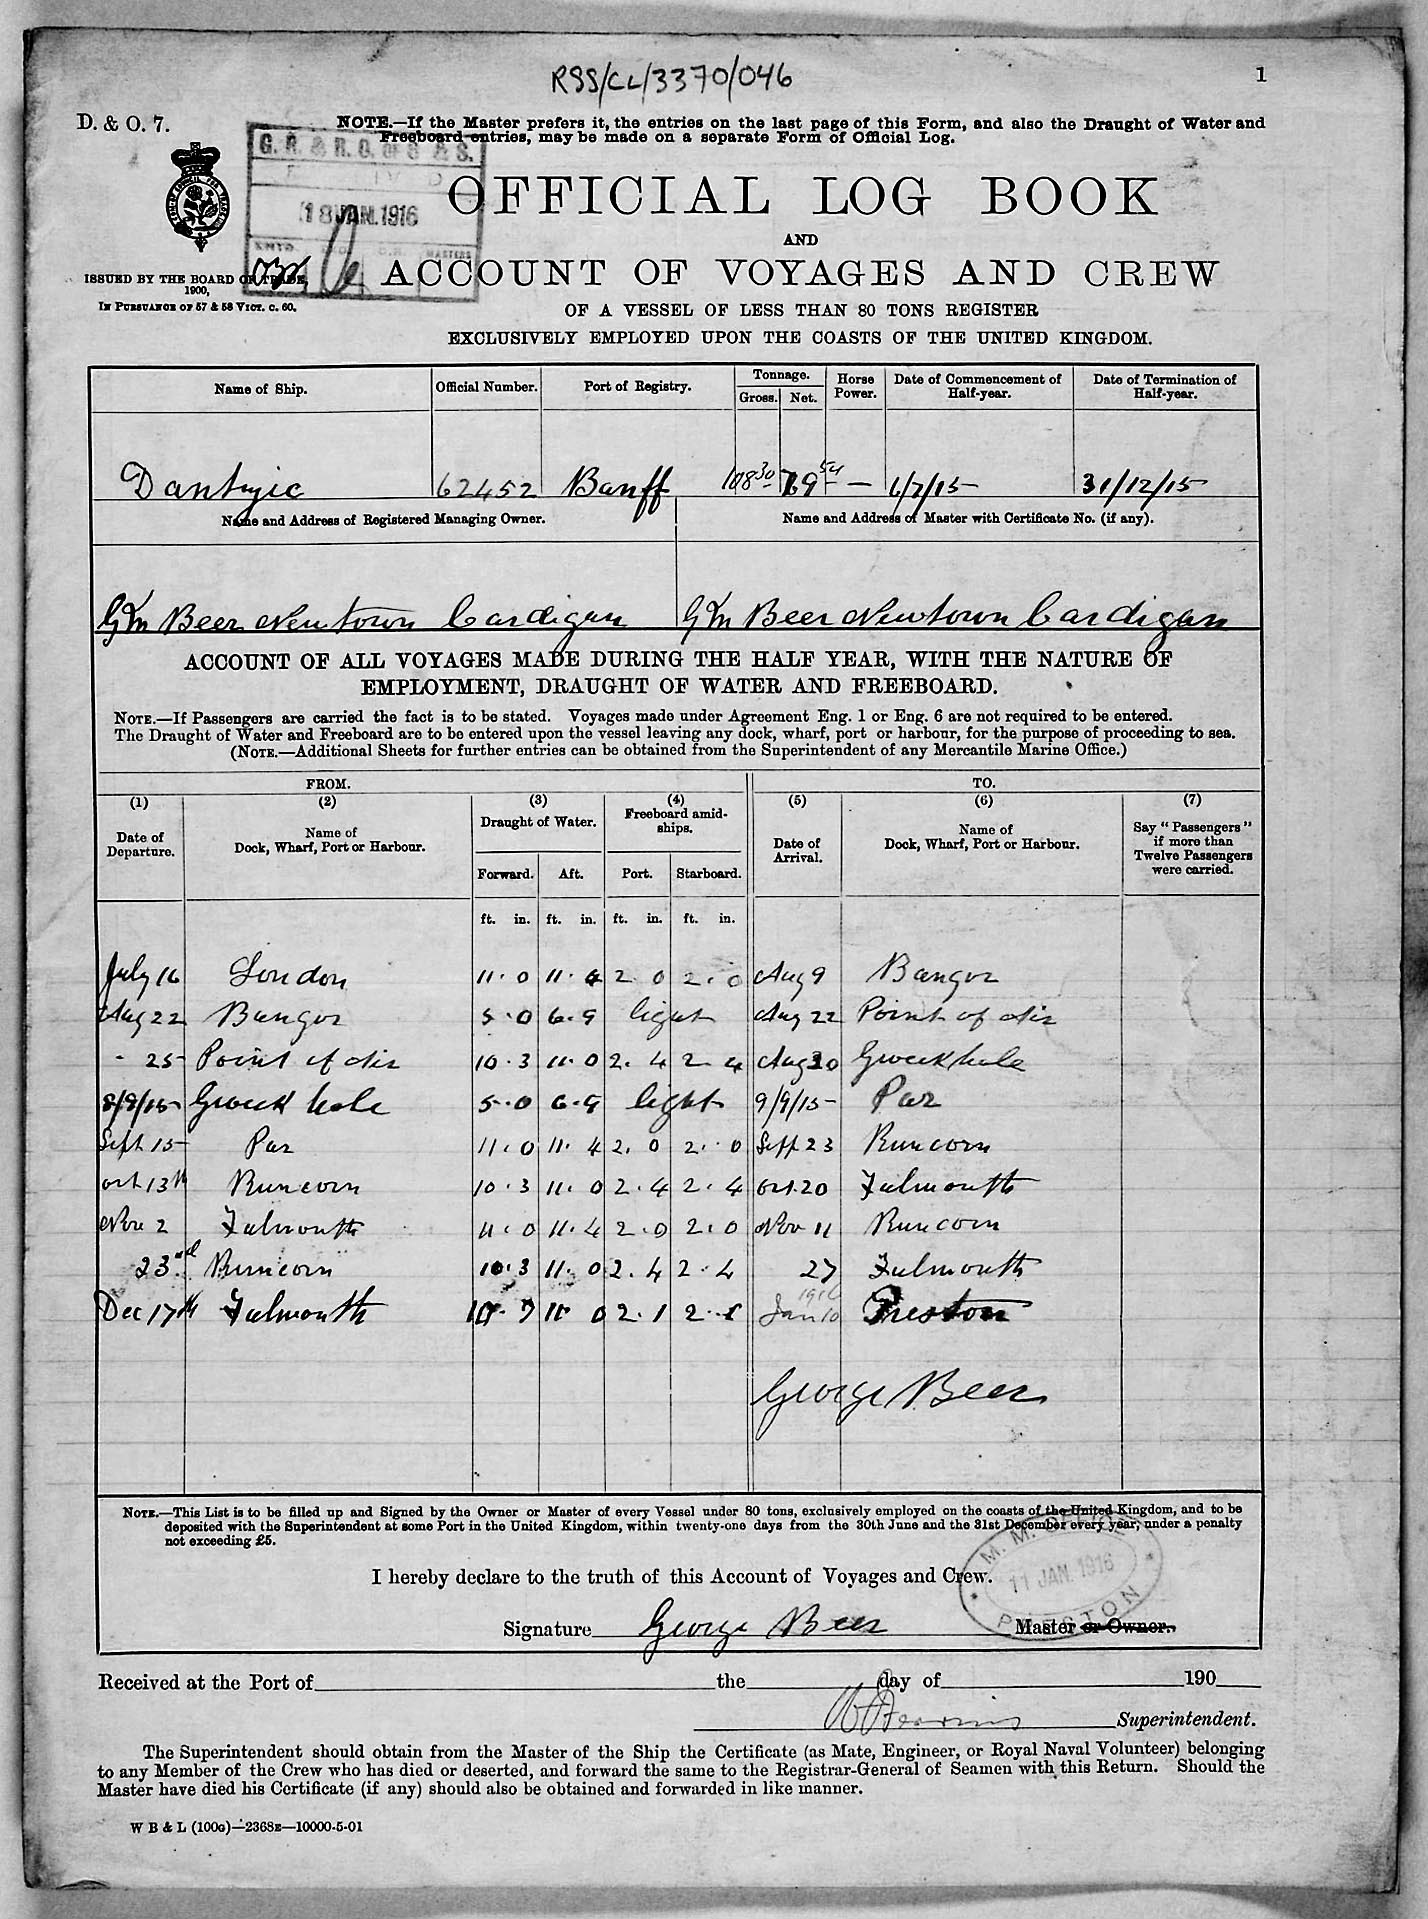 RSS/CL/3370/046
1
D. & O. 7.
NOTE.—If the Master prefers it, the entries on the last page of this Form, and also the Draught of Water and
Freeboard entries, may be made on a separate Form of Official Log.
18 JAN. 1916
OFFICIAL LOG BOOK
AND
ACCOUNT OF VOYAGES AND CREW
ISSUED BY THE BOARD OF TRADE,
1900,
IN PURSUANCE OF 57 & 58 VICT. C. 60.
OF A VESSEL OF LESS THAN 80 TONS REGISTER
EXCLUSIVELY EMPLOYED UPON THE COASTS OF THE UNITED KINGDOM.
Name of Ship. Official Number. Port of Registry. Tonnage. Gross. Net. Horse Power. Date of Commencement of Half-year. Date of Termination of Half-year.
62452 Banff 108 30 79 54 — 1/7/15 31/12/15
Name and Address of Registered Managing Owner. Name and Address of Master with Certificate No. (if any).
G Beer Newtown Cardigan G Beer Newtown Cardigan
ACCOUNT OF ALL VOYAGES MADE DURING THE HALF YEAR, WITH THE NATURE OF
EMPLOYMENT, DRAUGHT OF WATER AND FREEBOARD.
NOTE.—If Passengers are carried the fact is to be stated. Voyages made under Agreement Eng. 1 or Eng. 6 are not required to be entered.
The Draught of Water and Freeboard are to be entered upon the vessel leaving any dock, wharf, port or harbour, for the purpose of proceeding to sea.
(NOTE.—Additional Sheets for further entries can be obtained from the Superintendent of any Mercantile Marine Office.)
FROM. TO.
(1) (2) (3) (4) (5) (6) (7)
Date of Departure. Name of Dock, Wharf, Port or Harbour. Draught of Water. Freeboard amid-ships. Date of Arrival. Name of Dock, Wharf, Port or Harbour. Say "Passengers" if more than Twelve Passengers were carried.
Forward. Aft. Port. Starboard.
ft. in. ft. in. ft. in. ft. in.
July 16 London 11.0 11. 2 0 2.0 Aug 9 Bangor
Aug 22 Bangor 5.0 6.9 light Aug 22 Point of Air
- 25 Point of Air 10.3 11.0 2.4 2.4 Aug 30 Gweek hole
8/9/15 Gweek hole 5.0 6.9 light 9/9/15 Par
Sept 15 Par 11.0 11.4 2.0 2.0 Sept 23 Runcorn
Oct 13th Runcorn 10.3 11.0 2.4 2.4 Oct. 20 Falmouth
Nov 2 Falmouth 11.0 11.4 2.0 2.0 Nov 11 Runcorn
23rd Runcorn 10.3 11.0 2.4 2.4 27 Falmouth
Dec 17th Falmouth 10.7 11.0 2.1 2.1 Jan 10 1916 Preston
George Beer
NOTE.—This List is to be filled up and Signed by the Owner or Master of every Vessel under 80 tons, exclusively employed on the coasts of the United Kingdom, and to be
deposited with the Superintendent at some Port in the United Kingdom, within twenty-one days from the 30th June and the 31st December every year, under a penalty
not exceeding £5.
M. M. OFFICE
11 JAN. 1916
PRESTON
I hereby declare to the truth of this Account of Voyages and Crew.
Signature George Beer Master or Owner.
Received at the Port of the day of 190
Superintendent.
The Superintendent should obtain from the Master of the Ship the Certificate (as Mate, Engineer, or Royal Naval Volunteer) belonging
to any Member of the Crew who has died or deserted, and forward the same to the Registrar-General of Seamen with this Return. Should the
Master have died his Certificate (if any) should also be obtained and forwarded in like manner.
W B & L (100G)—2368E—10000-5-01